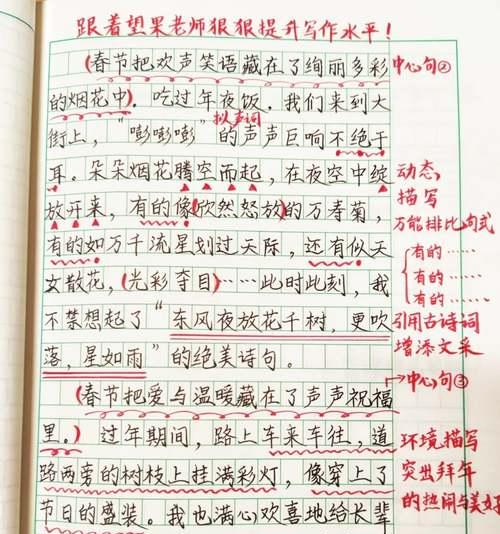 跟着望果老师狠狠提升写作水平！
(春节把欢声笑语藏在了绚丽多彩 中心句②
的烟花中)。吃过年夜饭，我们来到大
拟声词
街上，“嘭嘭嘭”的声声巨响不绝于
耳。朵朵烟花腾空而起，在夜空中绽 动态
放开来，有的像(欣然怒放)的万寿菊， 描写
万能排比句式
有的如万千流星划过天际，还有似天 有的……
女散花，(光彩夺目)……此时此刻，我 有的……
有的……
不禁想起了“东风夜放花千树，更吹 引用古诗词
落，星如雨”的绝美诗句。 增添文采
(春节把爱与温暖藏在了声声祝福 →中心句③
里。)过年期间，路上车来车往，道 环境描写
路两旁的树枝上挂满彩灯，像穿上了 突出拜年
节日的盛装。我也满心欢喜地给长辈 的热闹与美好